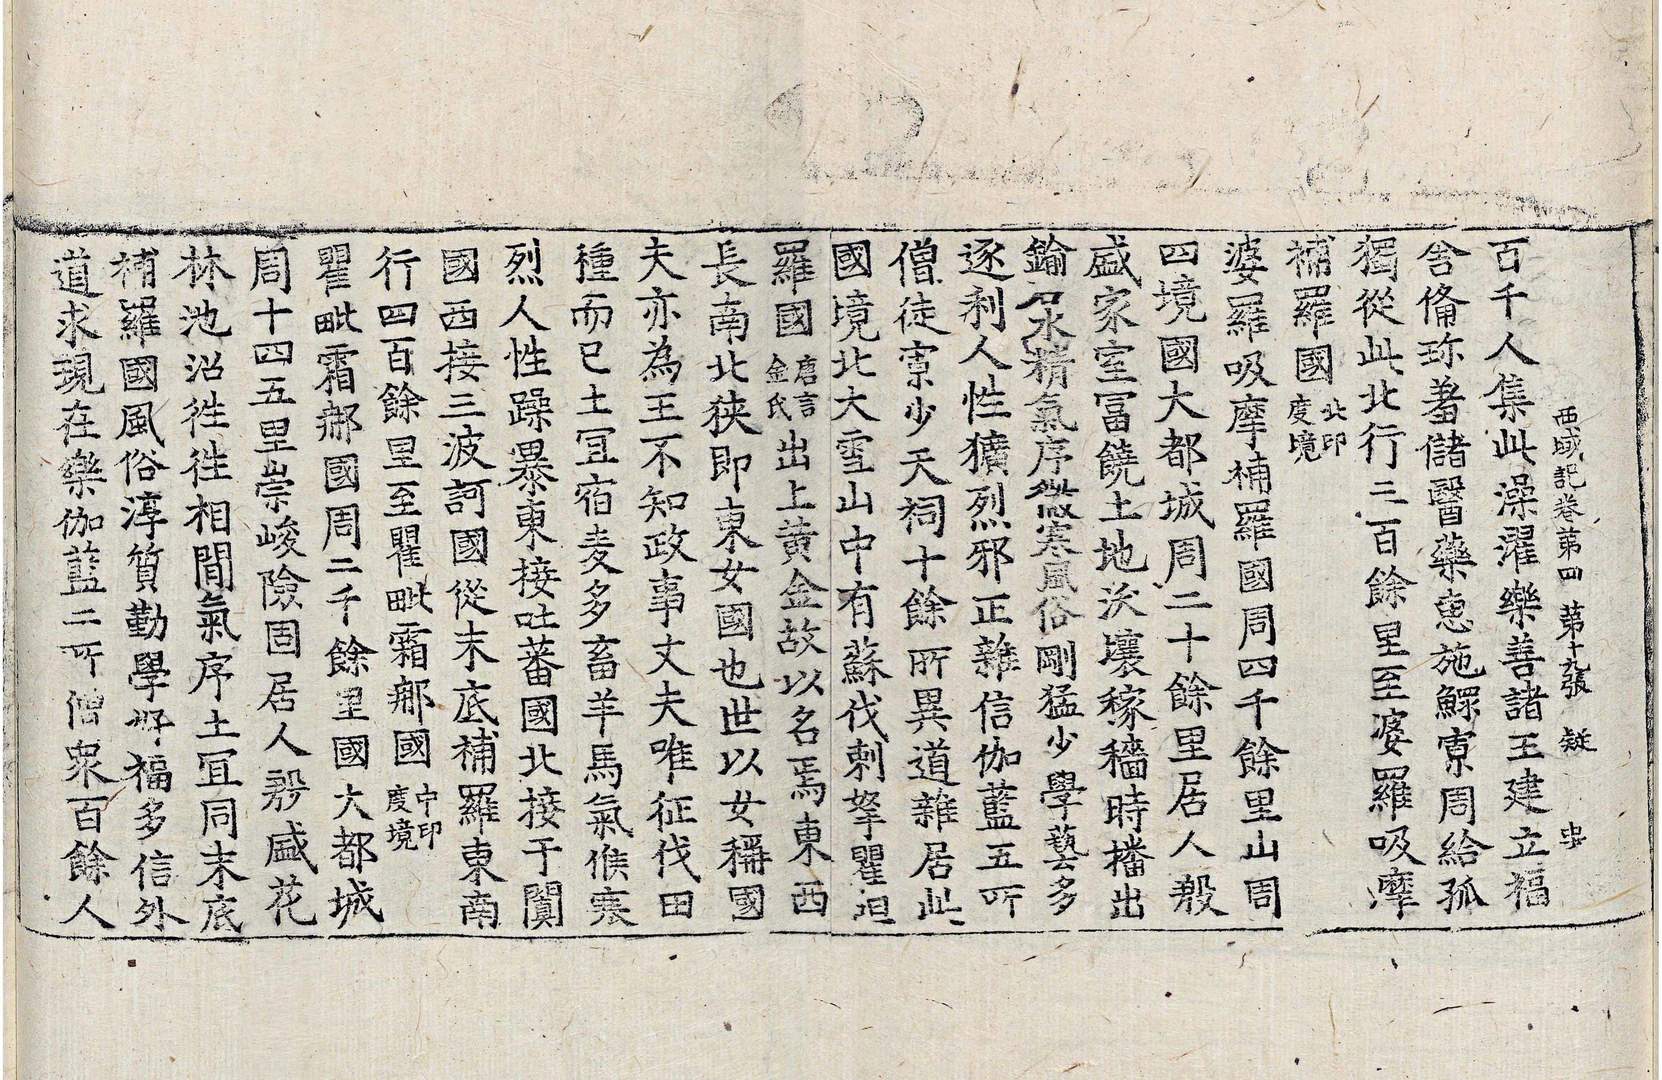 西域記卷第四 第十九張 疑
百千人集此澡濯樂善諸王建立福
舍俻珎羞儲醫藥恵施鰥寡周給孤
獨從此北行三百餘里至婆羅吸摩
補羅國北印度境
婆羅吸摩補羅國周四千餘里山周
四境國大都城周二十餘里居人殷
盛家室冨饒土地沃壤稼穡時播出
鍮石水精氣序微寒風俗剛猛少學藝多
逐利人性獷烈邪正雜信伽藍五所
僧徒寡少天祠十餘所異道雜居此
國境北大雪山中有蘇伐剌拏瞿呾
羅國唐言金氏出上黄金故以名焉東西
長南北狹即東女國也世以女稱國
夫亦為王不知政事丈夫唯征伐田
種而已土宜宿麦多畜羊馬氣候寒
烈人性躁暴東接吐蕃國北接于闐
國西接三波訶國從末底補羅東南
行四百餘里至瞿毗霜那國中印度境
瞿毗霜那國周二千餘里國大都城
周十四五里崇峻險固居人殷盛花
林池沼徃徃相間氣序土宜同末底
補羅國風俗淳質勤學好福多信外
道求現在樂伽藍二所僧衆百餘人